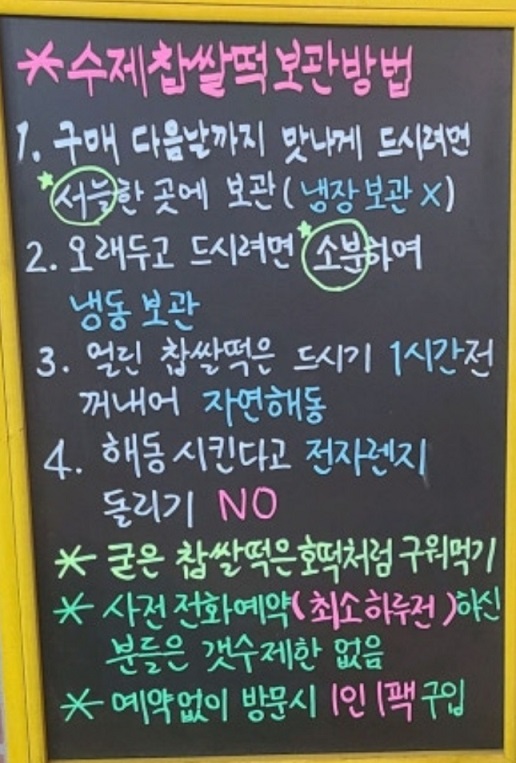 *수제찹쌀떡보관방법
1. 구매 다음날까지 맛나게 드시려면
*서늘한 곳에 보관(냉장보관 X)
2. 오래두고 드시려면 *소분하여
냉동 보관
3. 얼린 찹쌀떡은 드시기 1시간전
꺼내어 자연해동
4. 해동시킨다고 전자렌지
돌리기 NO
* 굳은 찹쌀떡은호떡처럼 구워먹기
* 사전 전화예약(최소하루전)하신
분들은 갯수제한 없음
* 예약없이 방문시 1인 1팩 구입